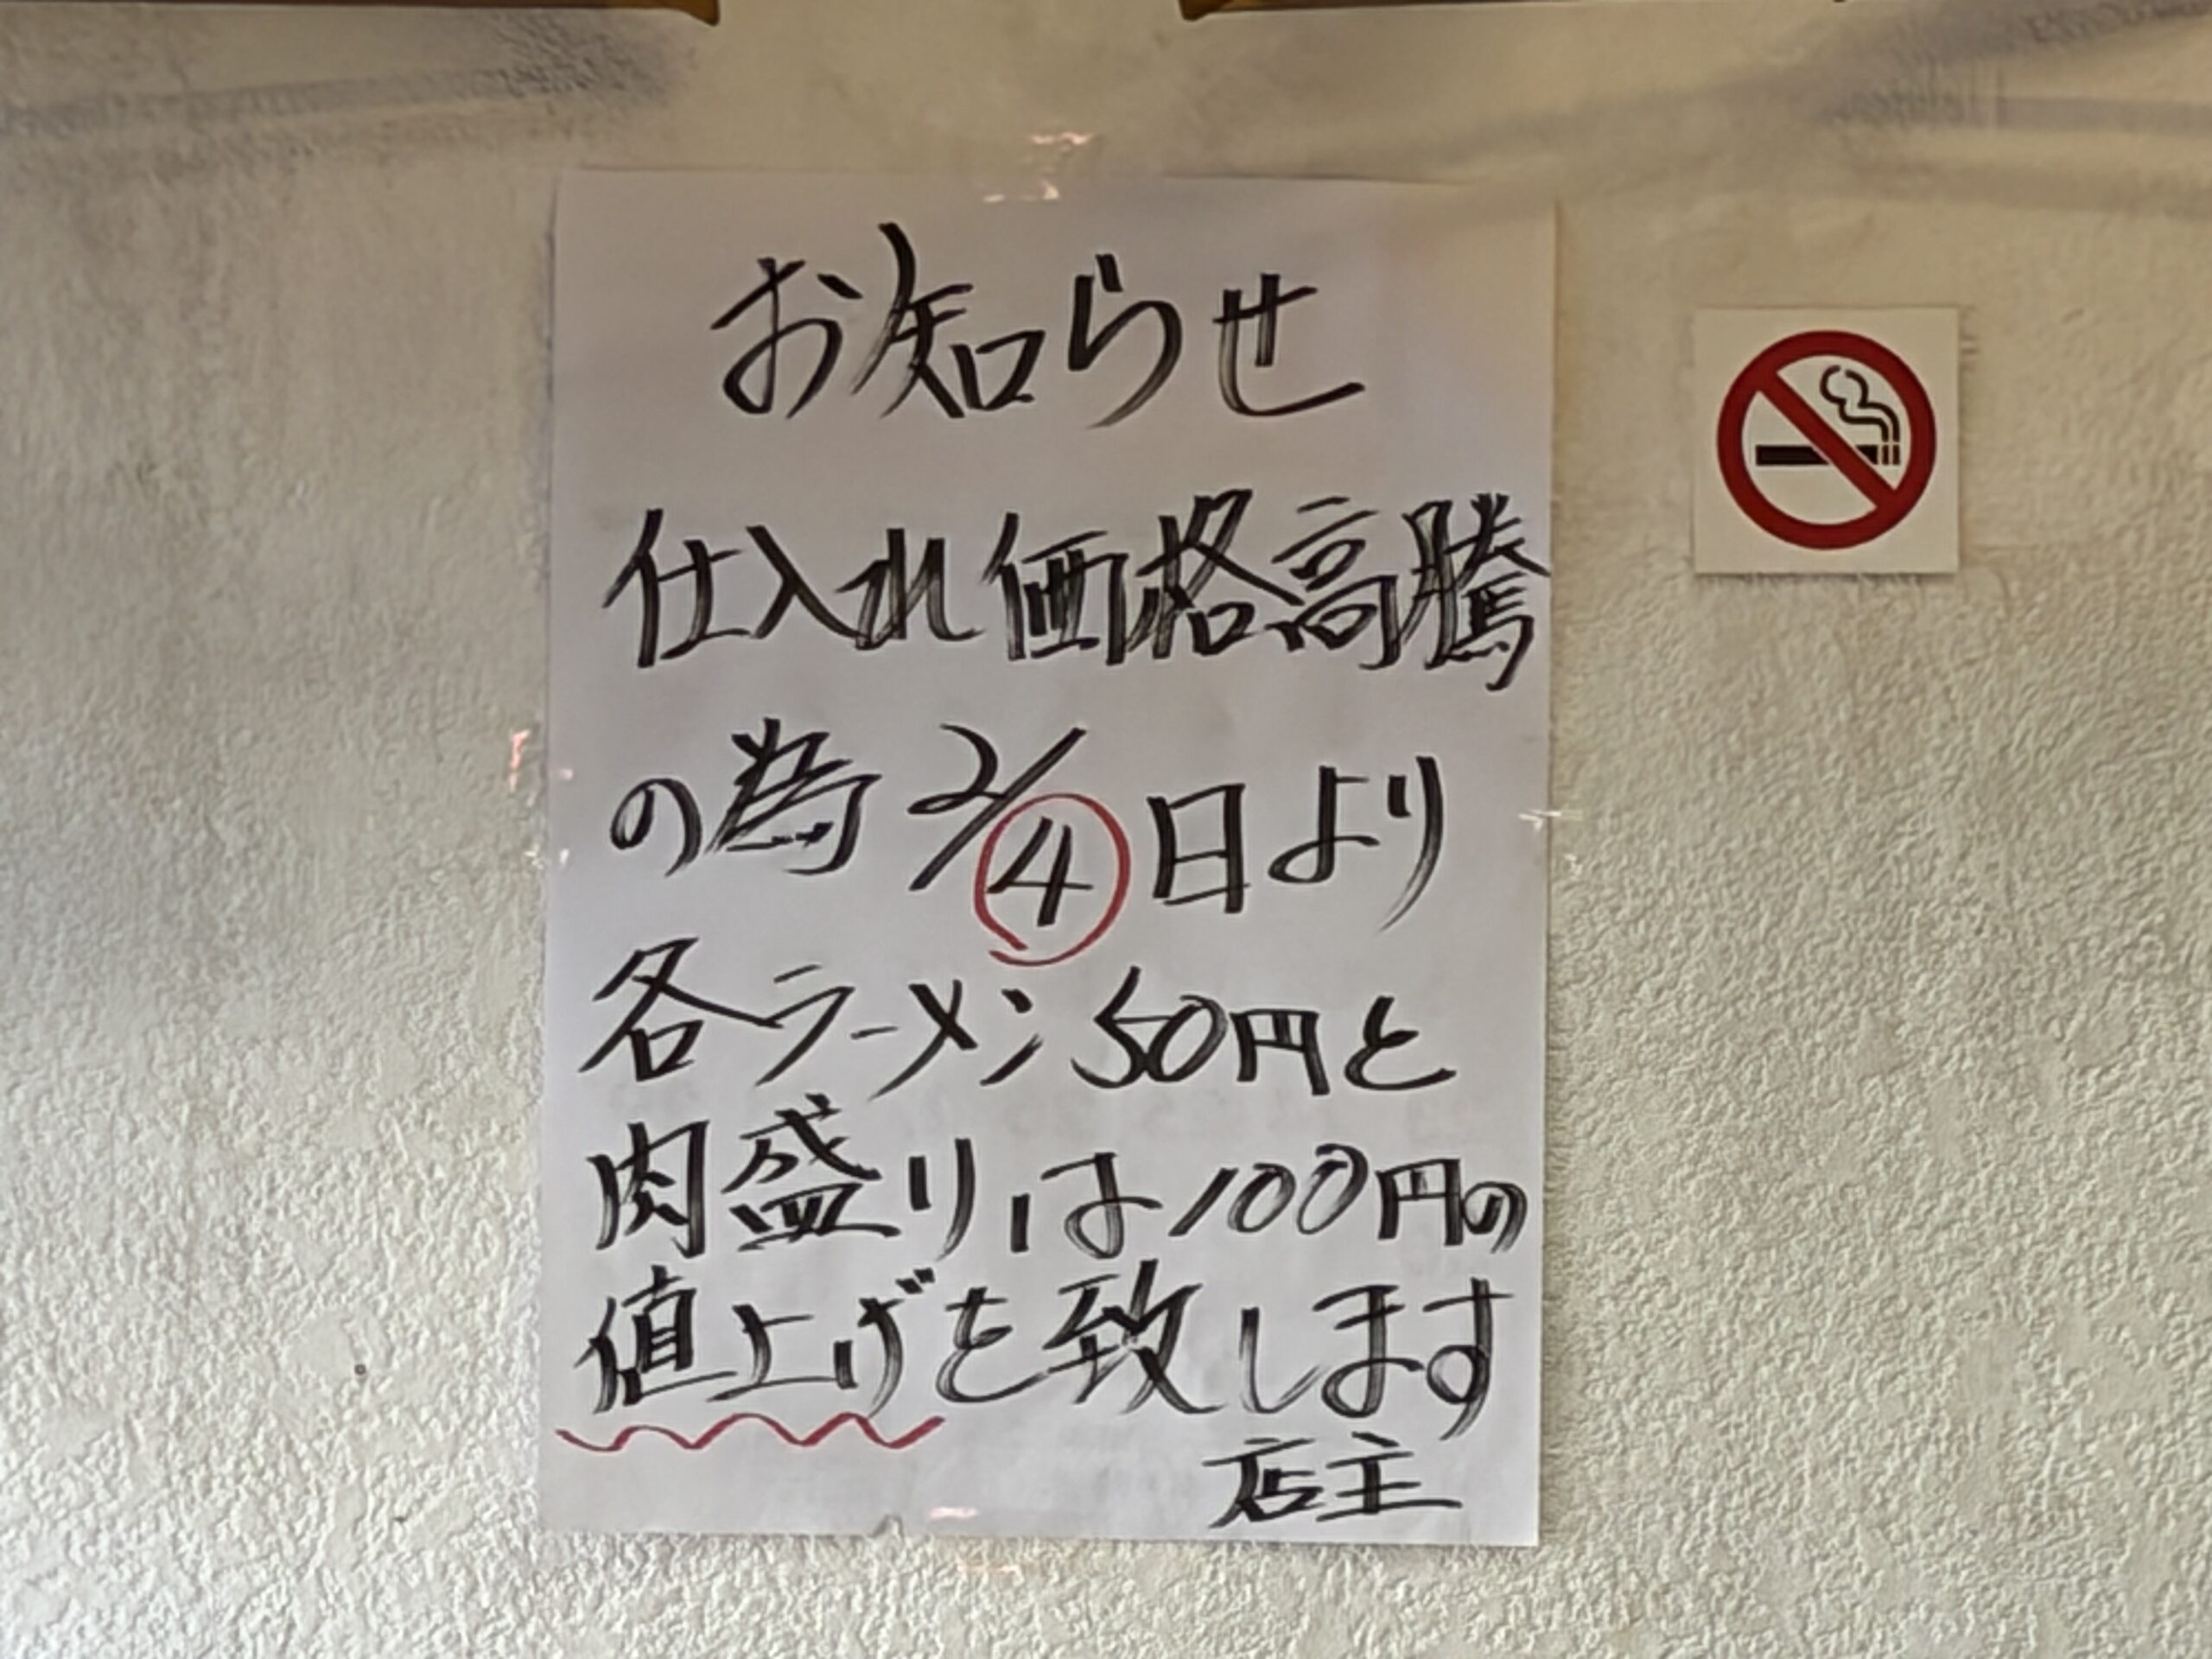 お知らせ
仕入れ価格高騰
の為2/4日より
各ラーメン50円と
肉盛りは100円の
値上げを致します
店主